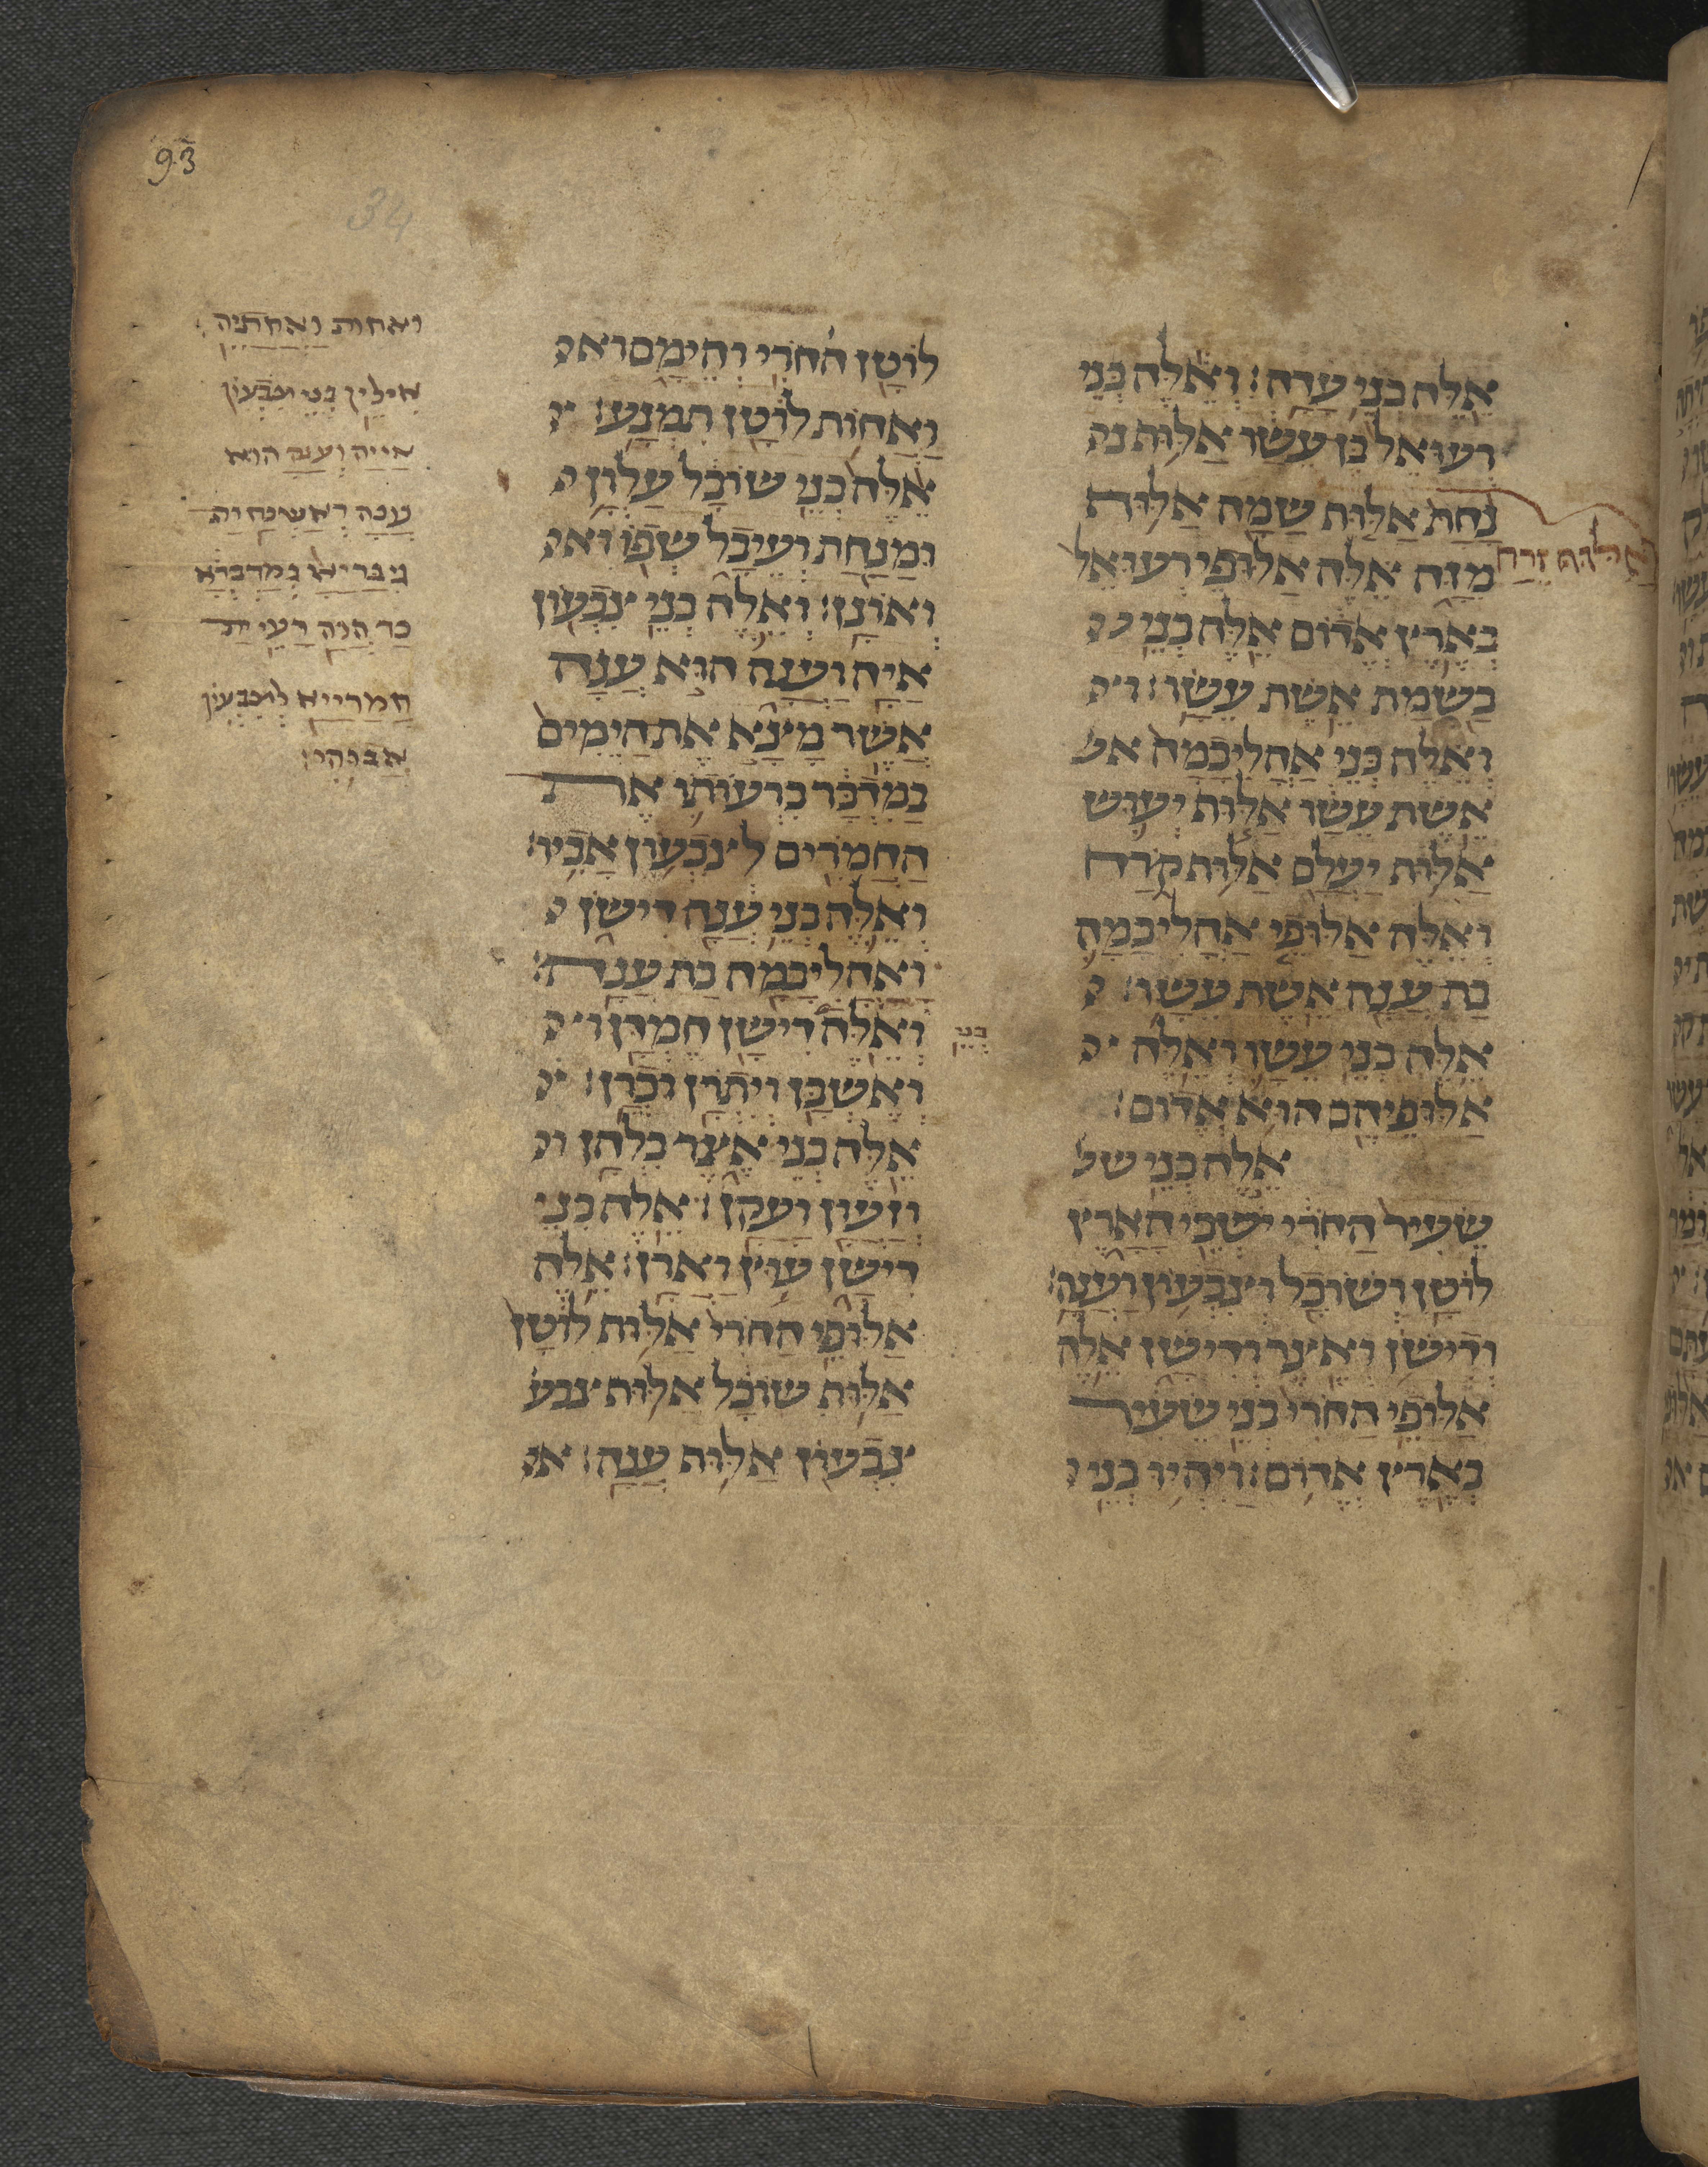 93
34
אלה בני עדה: ואלה בני
רעואל בן עשו אלוף
נחת אלוף שמה אלוף
אלוף זרח
מזה אלה אלופי רעואל
בארץ אדום אלה בני
בשמת אשת עשו:
ואלה בני אהליבמה אש
אשת עשו אלוף יעוש
אלוף יעלם אלוף קרח
ואלה אלופי אהליבמה
בת ענה אשת עשו:
אלה בני עשו ואלה
אלופיהם הוא אדום:
אלה בני שע
שעיר החרי ישבי הארץ
לוטן ושובל וצבעון וענה:
ודישן ואצר ודישן אלה
אלופי החרי בני שעיר
בארץ אדום: ויהיו בני
לוטן החרי והימם וא
ואחות לוטן תמנע:
אלה בני שובל עלון
ומנחת ועיבל שפו וא
ואונן: ואלה בני צבעון
איה וענה הוא ענה
אשר מצא את הימים
במדבר ברעותו את
החמרים לצבעון אביו:
ואלה בני ענה דישן
ואהליבמה בת ענה:
בני
ואלה דישן חמדן ו
ואשבן ויתרן וכרן:
אלה בני אצר בלהן ו
וזעון ועקן: אלה בני
דישן עוץ וארן: אלה
אלופי החרי אלוף לוטן
אלוף שובל אלוף צבע
צבעון אלוף ענה: א
ואחות ואחתיה
אילין בני צבעון
אייה וענה הוא
ענה דאשכח ית
גיבריא במדברא
כד הוה רעי ית
חמרייא לצבעון
אבוהי: